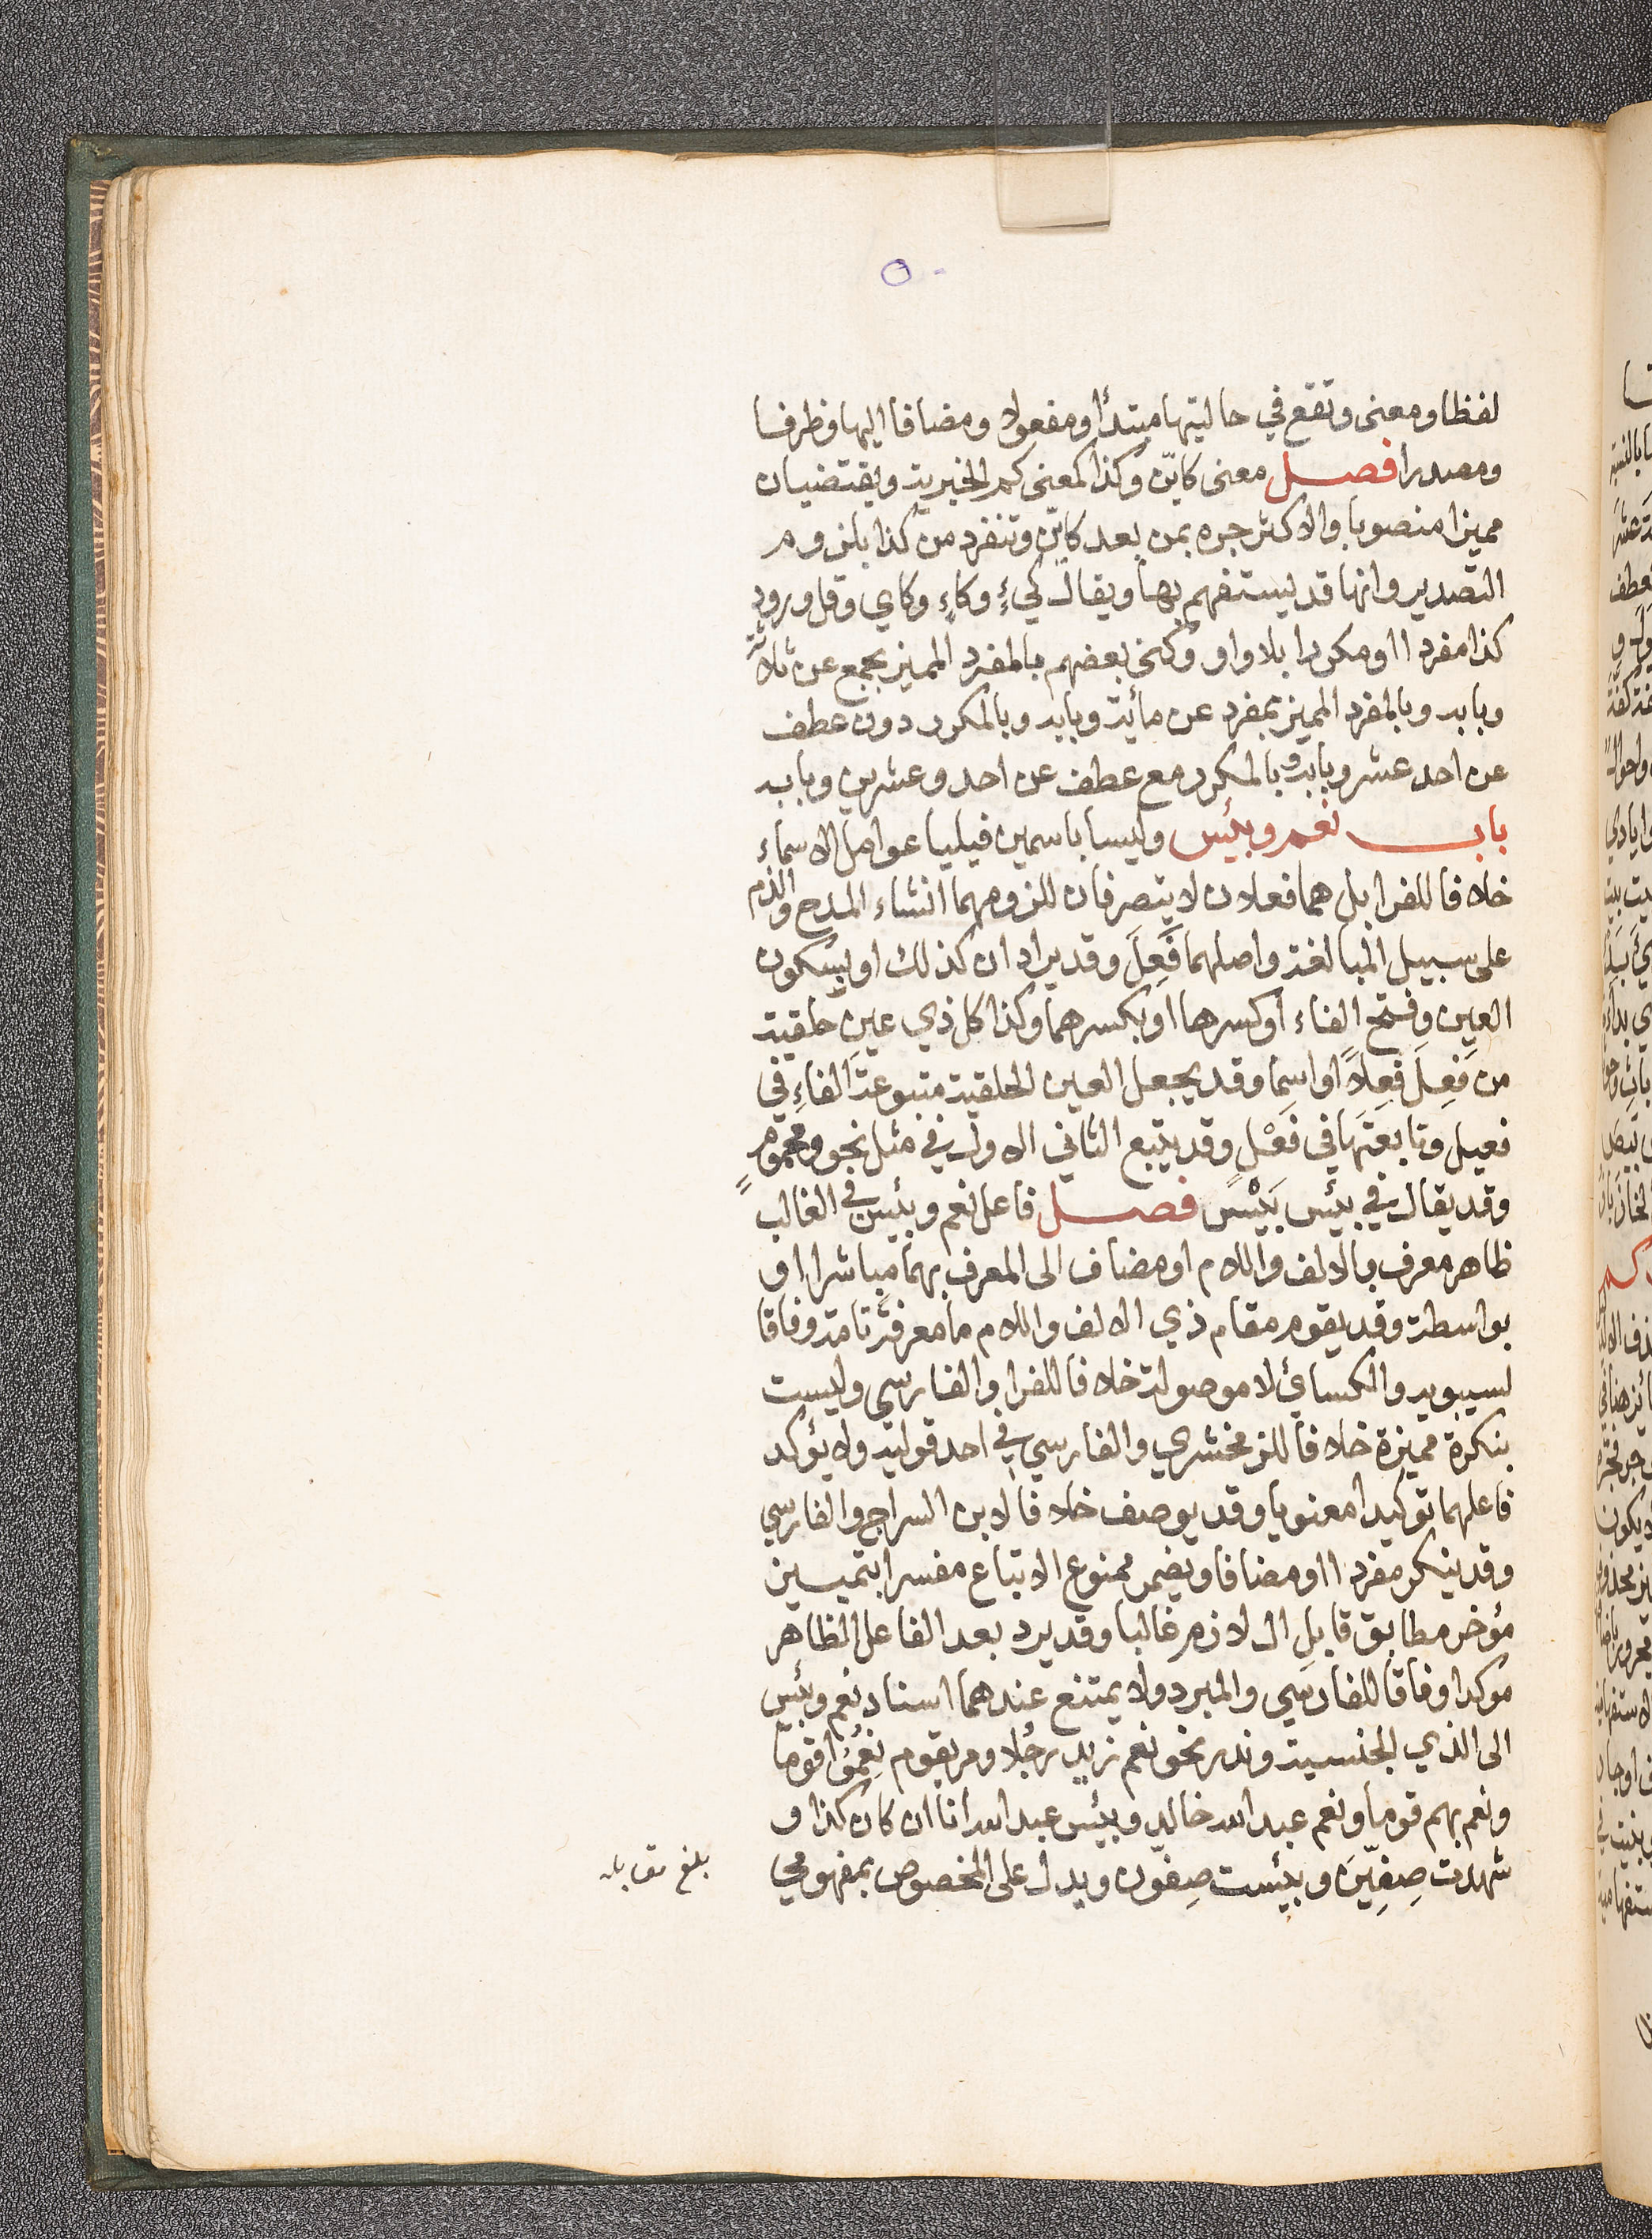 لفظا ومعنى وتقع في حالتيها مبتدأ ومفعولا ومضافا اليها وظرفا
ومصدرا فصل معنى كايّن وكذا كمعنى كم الخبرية ويقتضيان
مميزا منصوبا والاكثر جره بمن بعد كايّن وتنفرد من كذا بلزوم
التصدير وانها قد يستفهم بها ويقال كيءٍ وكاءٍ وكاي وقل ورود
كذا مفردا او مكررا بلا واو وكنى بعضهم بالمفرد المميز بجمع عن ثلاثة
وبابه وبالمفرد المميز بمفرد عن مائة وبابه وبالمكرر دون عطف
عن احد عشر وبابه وبالمكرر مع عطف عن احد وعشرين وبابه
باب نعم وبئس وليسا باسمين فيليا عوامل الاسماء
خلافا للفرا بل هما فعلان لا يتصرفان للزومهما انشاء المدح والذم
على سبيل المبالغة واصلهما فَعِلَ وقد يرادان كذلك او بسكون
العين وفتح الفاء او كسرها او بكسرهما وكذا كل ذي عين حلقية
من فَعِلَ فِعلاً او اسما وقد يجعل العين الحلقية متبوعةَ الفاءِ في
فعيل وتابعتَها في فَعْل وقد يتبع الثاني الاول في مثل نحو ومحموم
وقد يقال في بئس بَيْسَ فصل فاعل نعم وبئس في الغالب
ظاهر معرف بالالف واللام او مضاف الى المعرف بهما مباشرا او
بواسطة وقد يقوم مقام ذي الالف واللام ما معرفة تامة وفاقا
لسيبويه والكسائي لا موصولة خلافا للفرا والفارسي وليست
بنكرة مميزة خلافا للزمخشري والفارسي في احد قوليه ولا يؤكد
فاعلهما توكيدا معنويا وقد يوصف خلافا لابن السراج والفارسي
وقد ينكر مفردا او مضافا ويضمر ممنوع الاتباع مفسرا بتمييز
مؤخر مطابق قابلِ ال لازم غالبا وقد يرد بعد الفاعل الظاهر
موكدا وفاقا للفارسي والمبرد ولا يمتنع عندهما اسناد نعم وبئس
الى الذي الجنسية وندر نحو نعم زيد رجلا ومر بقوم نِعْمُوا قوما
ونعم بهم قوما ونعم عبد الله خالد وبئس عبد الله انا ان كان كذا و
شهدت صِفِّينَ وبئست صِفّون ويدل على المخصوص بمفهومي
بلغ مقابله